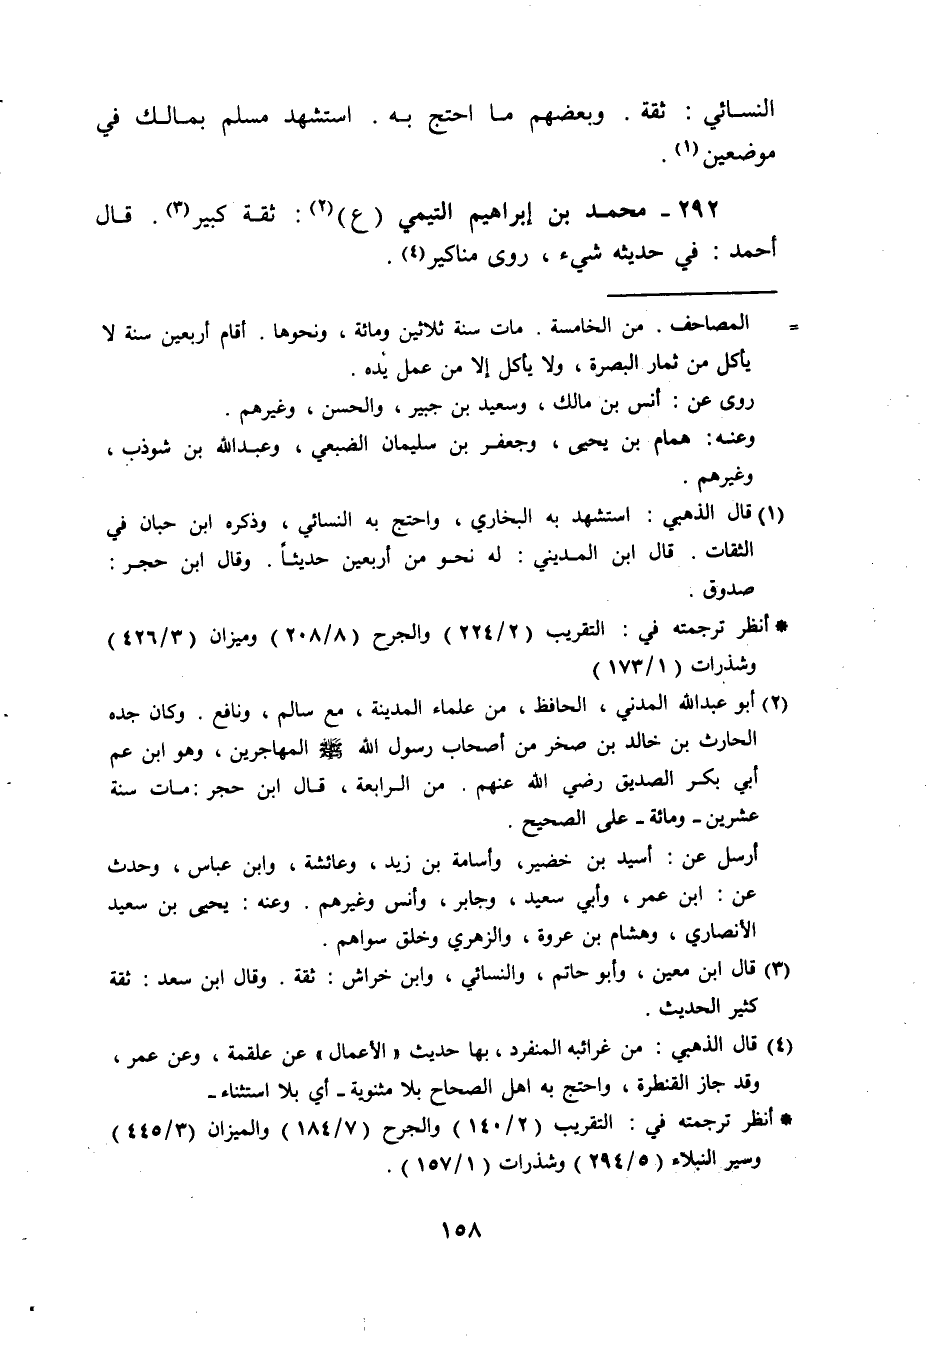 النسائي : ثقة . وبعضهم ما احتج به . استشهد مسلم بمالك في
موضعين(١) .
٢٩٢ ـ محمد بن إبراهيم التيمي ( ع )(٢) : ثقة كبير(٣) . قال
أحمد : في حديثه شيء ، روى مناكير(٤) .
= المصاحف . من الخامسة . مات سنة ثلاثين ومائة ، ونحوها . أقام أربعين سنة لا
يأكل من ثمار البصرة ، ولا يأكل إلا من عمل يده .
روى عن : أنس بن مالك ، وسعيد بن جبير ، والحسن ، وغيرهم .
وعنه : همام بن يحيى ، وجعفر بن سليمان الضبعي ، وعبدالله بن شوذب ،
وغيرهم .
(١) قال الذهبي : استشهد به البخاري ، واحتج به النسائي ، وذكره ابن حبان في
الثقات . قال ابن المديني : له نحو من أربعين حديثاً . وقال ابن حجر :
صدوق .
* أنظر ترجمته في : التقريب ( ٢٢٤/٢ ) والجرح ( ٢٠٨/٨ ) وميزان ( ٤٢٦/٣ )
وشذرات ( ١٧٣/١ )
(٢) أبو عبدالله المدني ، الحافظ ، من علماء المدينة ، مع سالم ، ونافع . وكان جده
الحارث بن خالد بن صخر من أصحاب رسول الله ﷺ المهاجرين ، وهو ابن عم
أبي بكر الصديق رضي الله عنهم . من الرابعة ، قال ابن حجر : مات سنة
عشرين ـ ومائة ـ على الصحيح .
أرسل عن : أسيد بن خضير ، وأسامة بن زيد ، وعائشة ، وابن عباس ، وحدث
عن : ابن عمر ، وأبي سعيد ، وجابر ، وأنس وغيرهم . وعنه : يحيى بن سعيد
الأنصاري ، وهشام بن عروة ، والزهري وخلق سواهم .
(٣) قال ابن معين ، وأبو حاتم ، والنسائي ، وابن خراش : ثقة . وقال ابن سعد : ثقة
كثير الحديث .
(٤) قال الذهبي : من غرائبه المنفرد ، بها حديث « الأعمال » عن علقمة ، وعن عمر ،
وقد جاز القنطرة ، واحتج به اهل الصحاح بلا مثنوية ـ أي بلا استثناء ـ
* أنظر ترجمته في : التقريب ( ١٤٠/٢ ) والجرح ( ١٨٤/٧ ) والميزان ( ٤٤٥/٣ )
وسير النبلاء ( ٢٩٤/٥ ) وشذرات ( ١٥٧/١ ) .
١٥٨